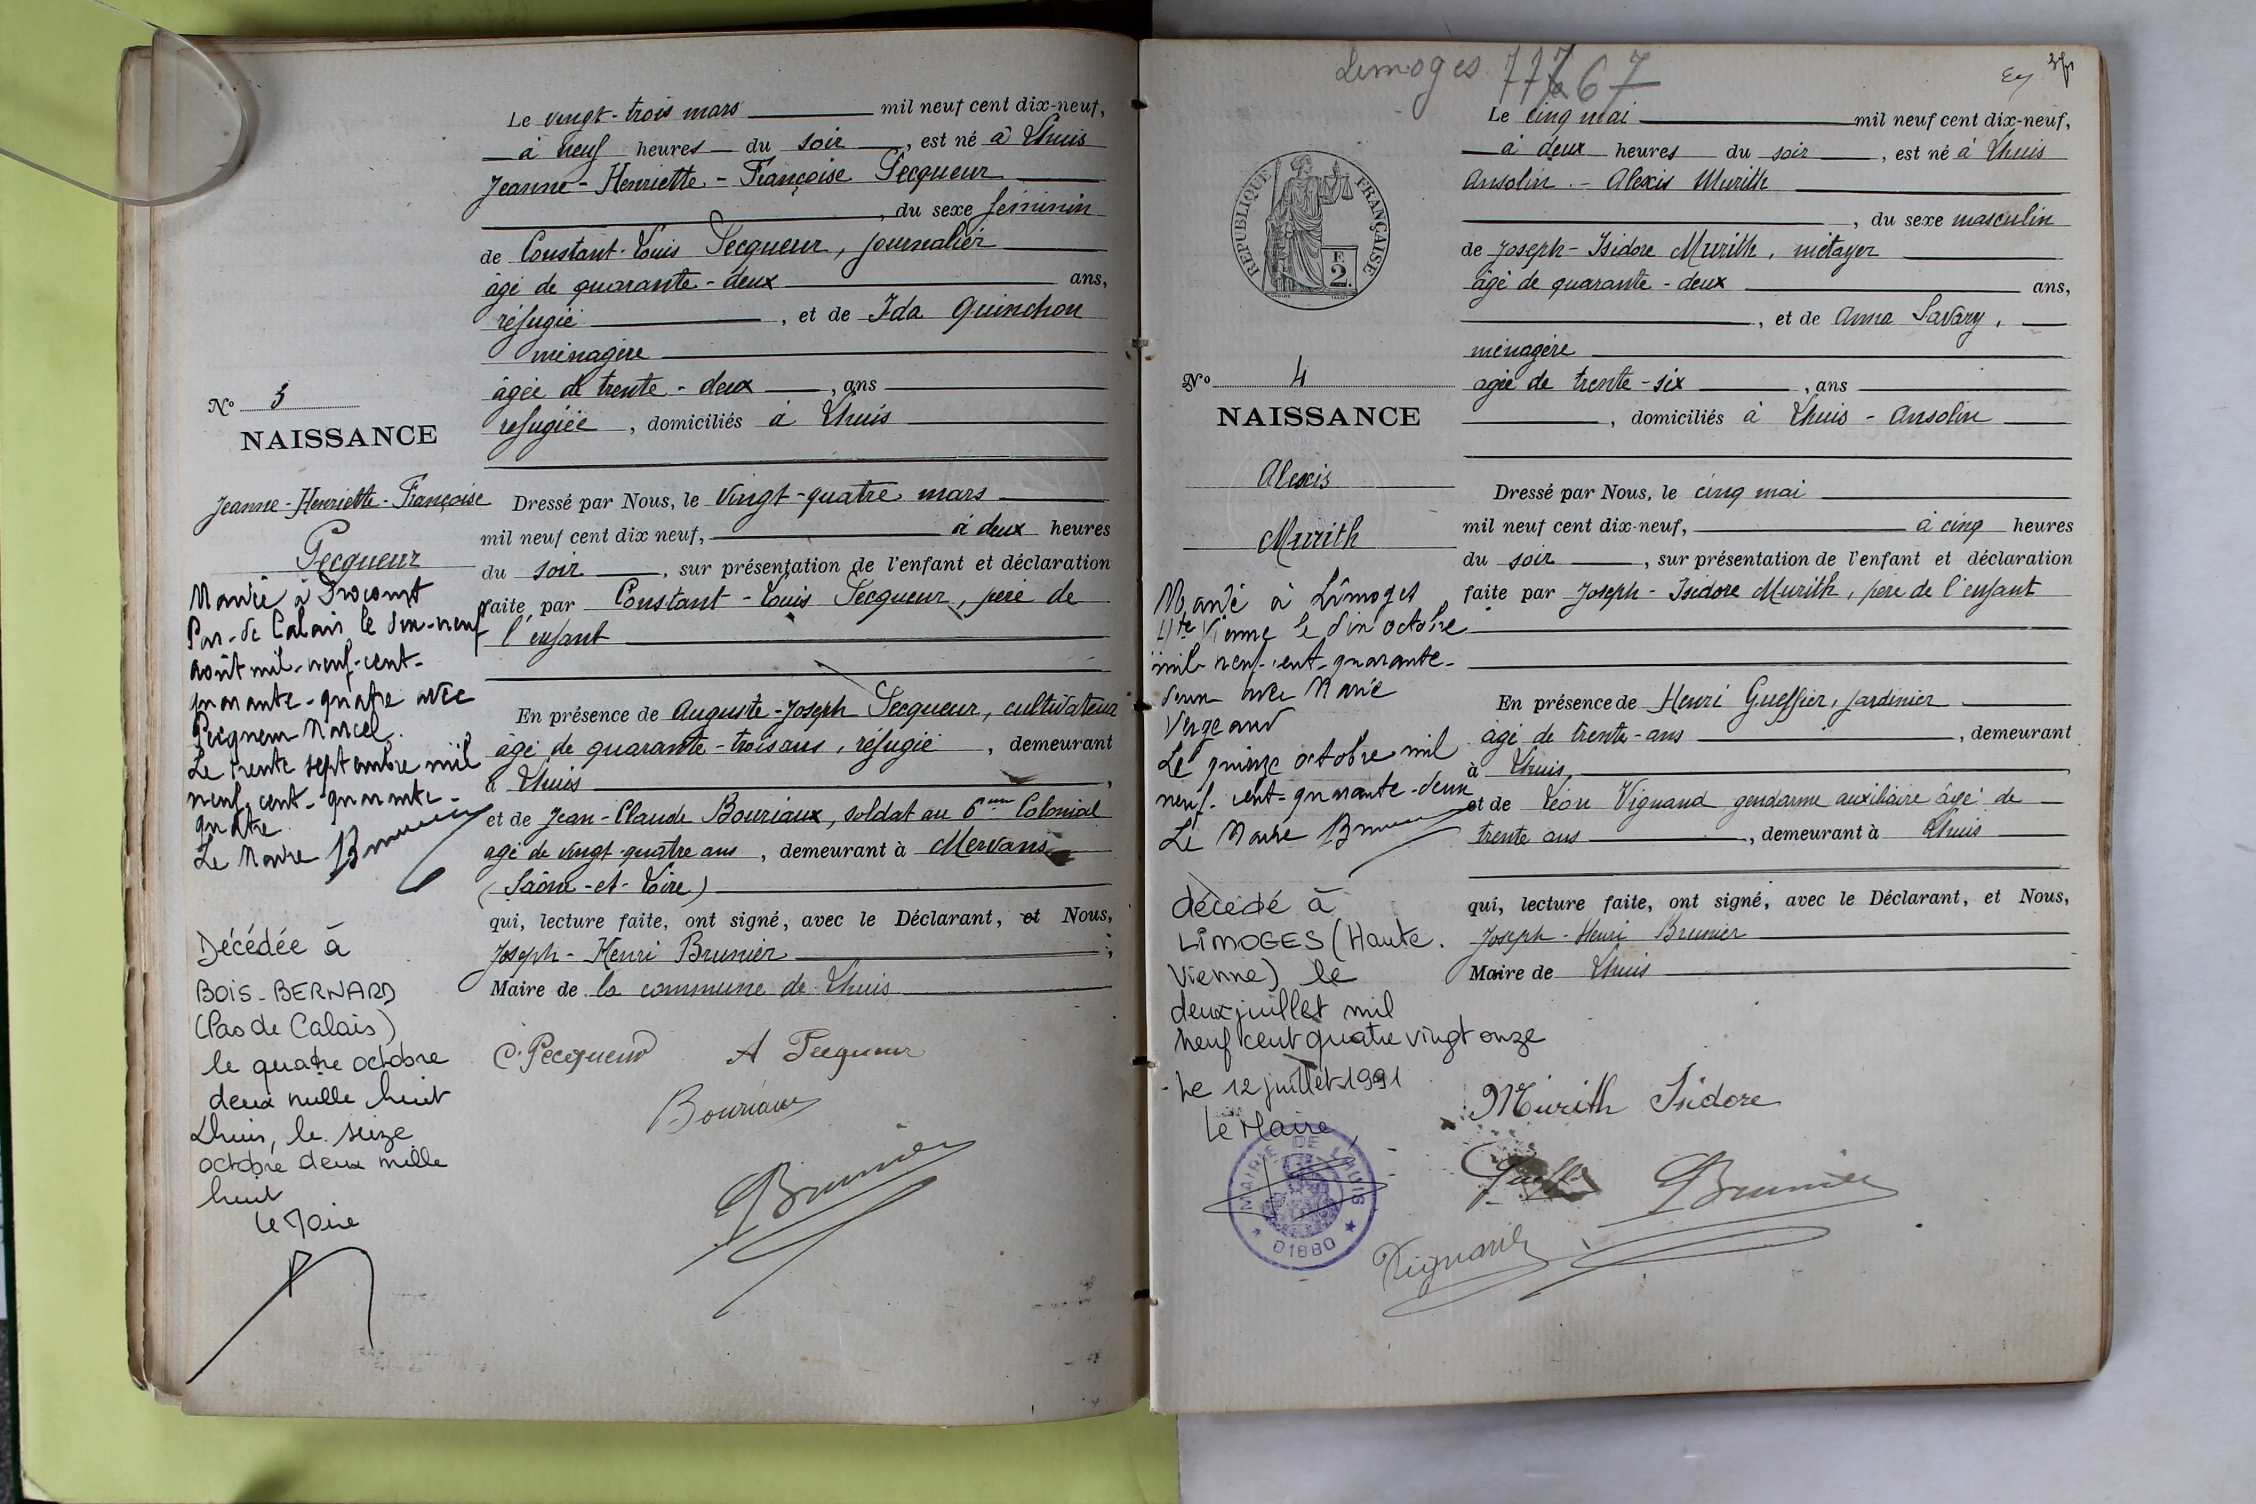 Le vingt-trois mars mil neuf cent dix-neuf,
à neuf heures du soir, est né à Lhuis
Jeanne-Henriette-Françoise Pecqueur
, du sexe féminin
de Constant-Louis Pecqueur, journalier
âgé de quarante-deux ans,
réfugié, et de Ida Quinchon
ménagère
âgée de trente-deux, ans
refugiée, domiciliés à Lhuis
N° 3
NAISSANCE
Jeanne-Henriette-Françoise
Pecqueur
Dressé par Nous, le vingt-quatre mars
mil neuf cent dix neuf, à deux heures
du soir, sur présentation de l'enfant et déclaration
faite par Constant-Louis Pecqueur, père de
l'enfant
En présence de Auguste-Joseph Pecqueur, cultivateur
âgé de quarante-trois ans, réfugié, demeurant
à Lhuis,
et de Jean-Claude Bouriaux, soldat au 6ème Colonial
âgé de vingt-quatre ans, demeurant à Mervans
(Saône-et-Loire)
qui, lecture faite, ont signé, avec le Déclarant, et Nous,
Joseph-Henri Brunier;
Maire de la commune de Lhuis
Mariée à
Pas-de Calais le dix-neuf
août mil-neuf-cent-
quarante-quatre avec
Marcel.
Le trente septembre mil
neuf-cent-quarante-
quatre
Le Maire Brunier
Décédée à
BOIS-BERNARD
(Pas de Calais)
le quatre octobre
deux mille huit
Lhuis, le seize
octobre deux mille
huit
Le Maire
C. Pecqueur A Pecqueur
Bouriaux
Brunier
Limoges 77767
Le cinq mai mil neuf cent dix-neuf,
à deux heures du soir, est né à Lhuis
Ansolin - Alexis Murith
, du sexe masculin
de Joseph-Isidore Murith, métayer
âgé de quarante-deux ans,
, et de Anna Savary,
ménagère
âgée de trente-six, ans
, domiciliés à Lhuis - Ansolin
RÉPUBLIQUE FRANÇAISE
E
2.
N° 4
NAISSANCE
Alexis
Murith
Dressé par Nous, le cinq mai
mil neuf cent dix-neuf, à cinq heures
du soir, sur présentation de l'enfant et déclaration
faite par Joseph-Isidore Murith, père de l'enfant
En présence de Henri Gueffier, jardinier
âgé de trente-ans, demeurant
à Lhuis,
et de Léon Vignand gendarme auxiliaire âgé de
trente ans, demeurant à Lhuis
qui, lecture faite, ont signé, avec le Déclarant, et Nous,
Joseph-Henri Brunier
Maire de Lhuis
Marié à Limoges
Hte Vienne le dix octobre
mil-neuf-cent-quarante-
deux avec Marie
Vergeaud
Le quinze octobre mil
neuf-cent-quarante-deux
Le Maire Brunier
décédé à
LIMOGES (Haute.
Vienne) le
deux juillet mil
neuf cent quatre vingt onze
- Le 12 juillet 1991
Le Maire,
MAIRIE DE LHUIS
01680
Murith Isidore
Brunier
Vignand